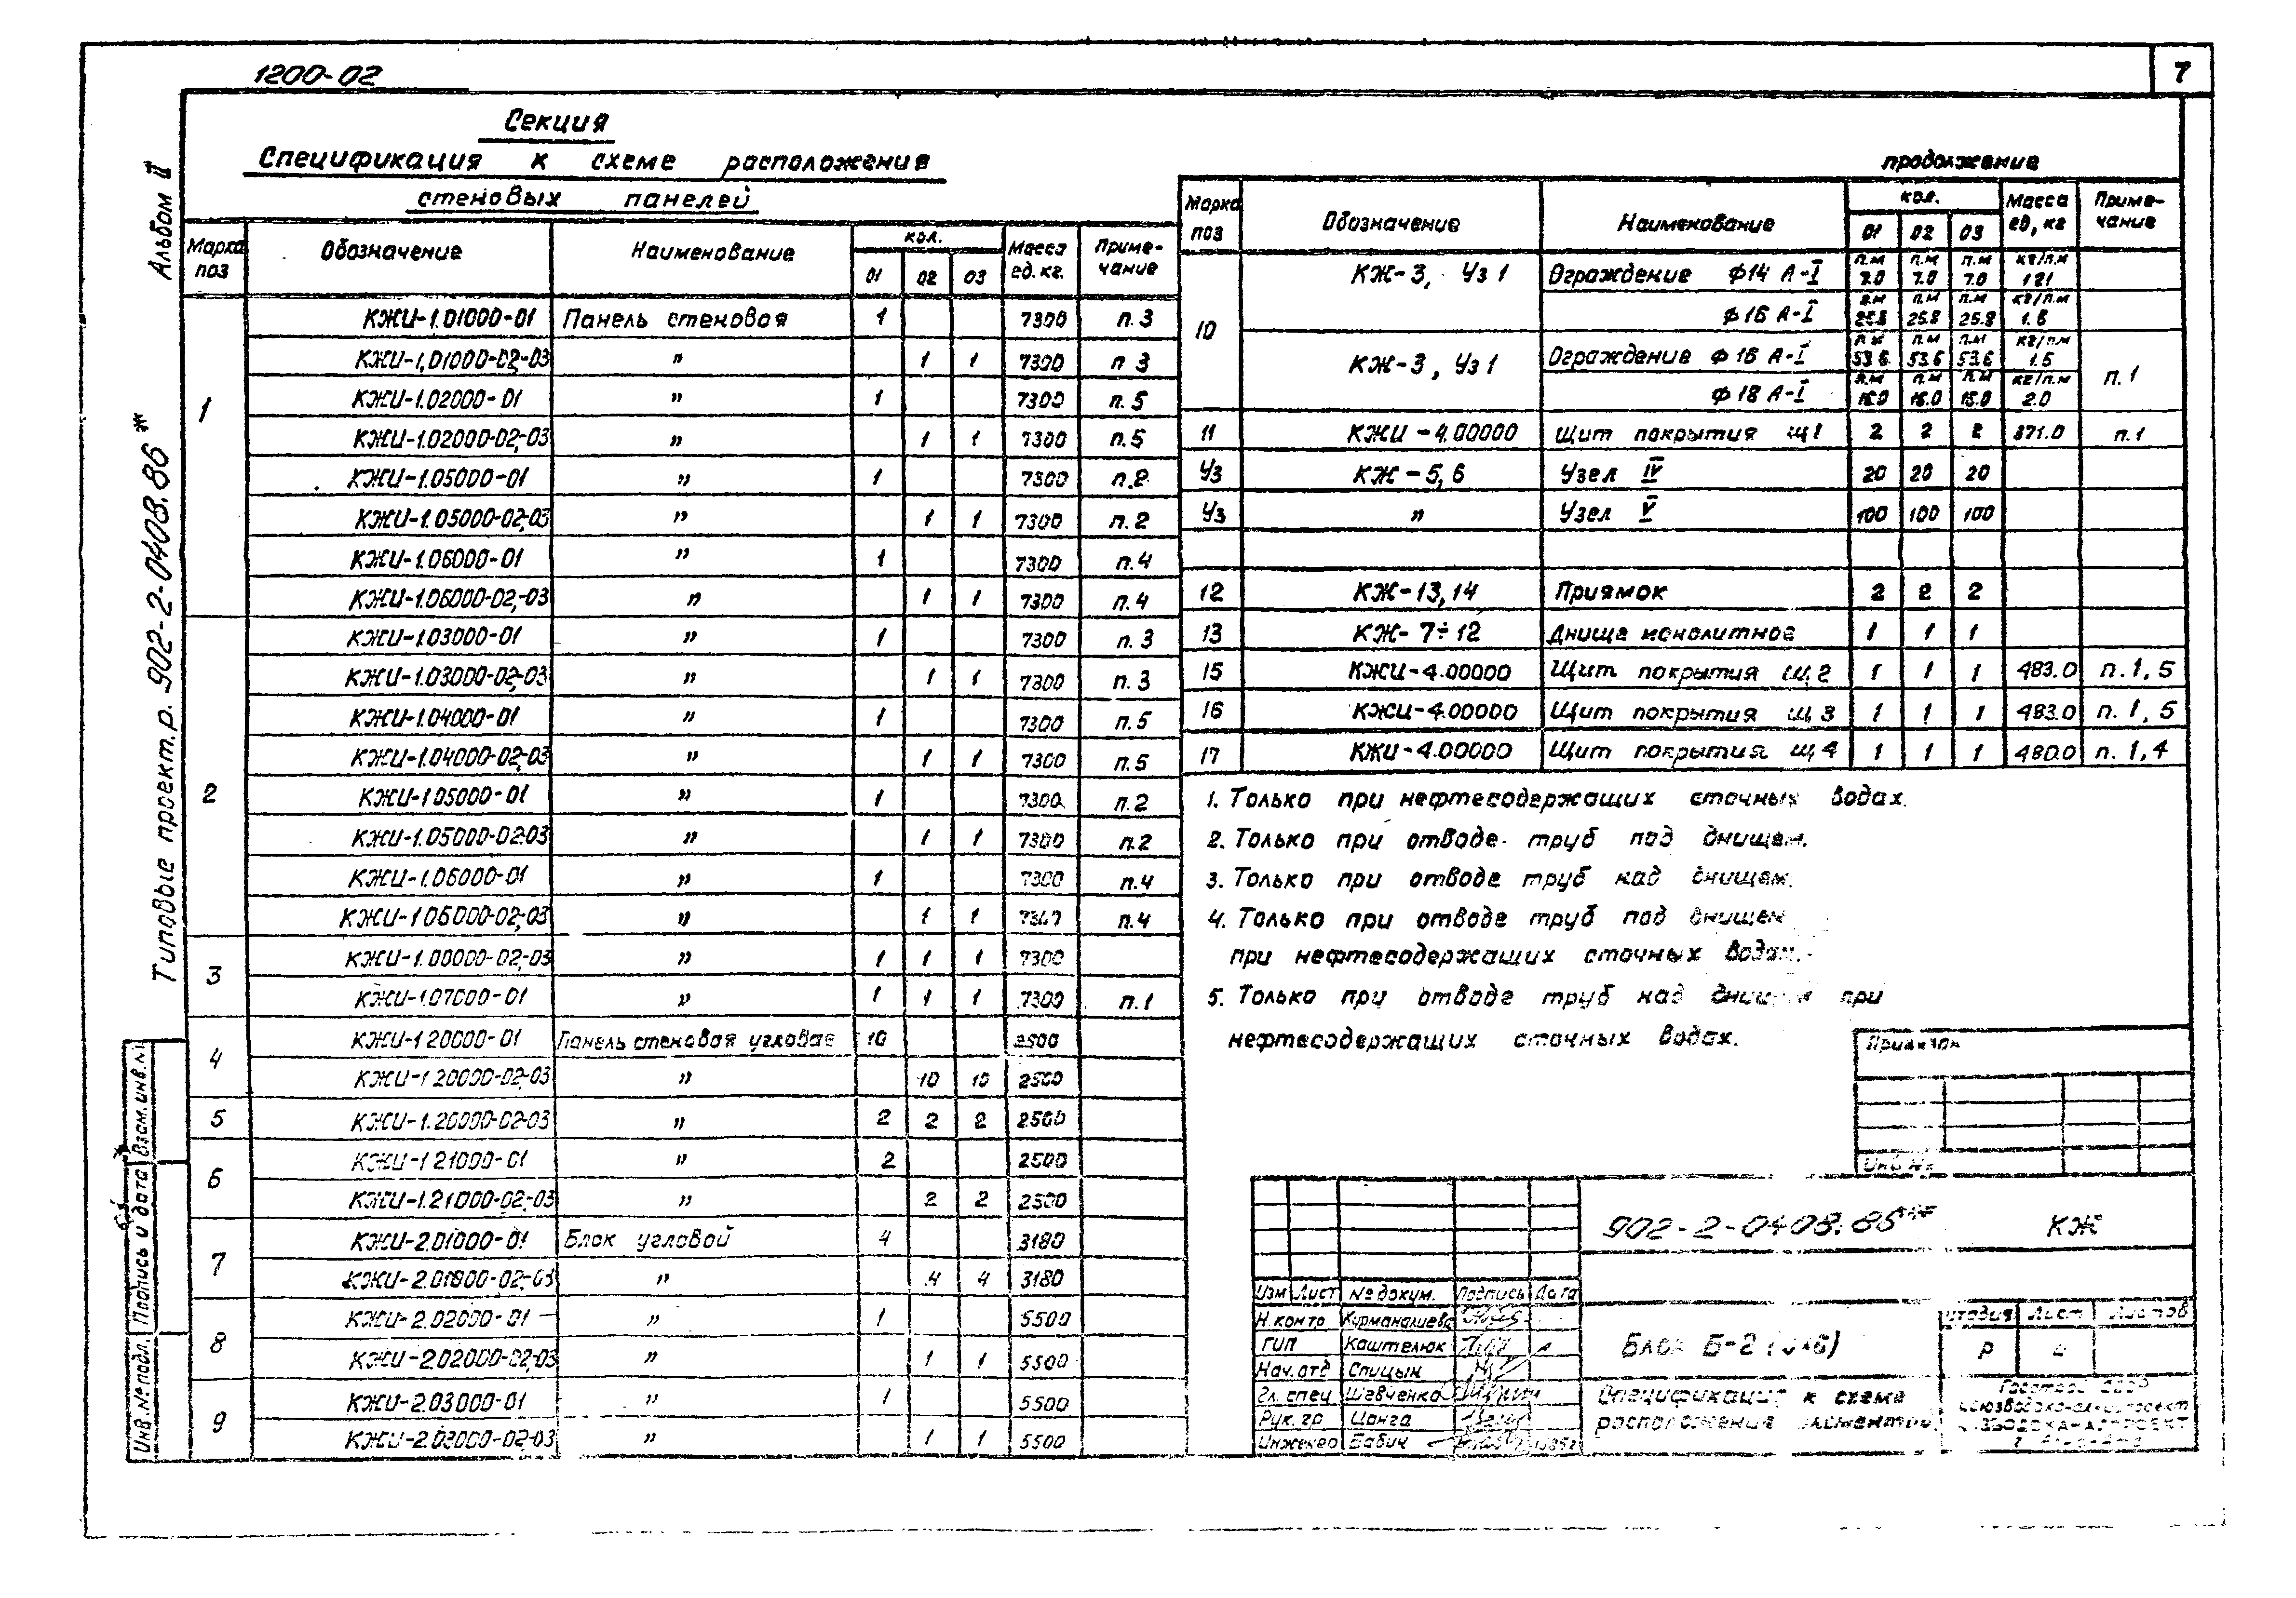 1200-02
7
Секция
Спецификация к схеме расположения
стеновых панелей
Марка поз Обозначение Наименование кол. 01 02 03 Масса ед. кг. Приме-чание
1
КЖИ-1.01000-01 Панель стеновая 1 7300 п.3
КЖИ-1.01000-02,-03 " 1 1 7300 п 3
КЖИ-1.02000-01 " 1 7300 п.5
КЖИ-1.02000-02,-03 " 1 1 7300 п.5
КЖИ-1.05000-01 " 1 7300 п.2
КЖИ-1.05000-02,-03 " 1 1 7300 п.2
КЖИ-1.06000-01 " 1 7300 п.4
КЖИ-1.06000-02,-03 " 1 1 7300 п.4
2
КЖИ-1.03000-01 " 1 7300 п.3
КЖИ-1.03000-02,-03 " 1 1 7300 п.3
КЖИ-1.04000-01 " 1 7300 п.5
КЖИ-1.04000-02,-03 " 1 1 7300 п.5
КЖИ-1 05000-01 " 1 7300 п.2
КЖИ-1.05000-02-03 " 1 1 7300 п.2
КЖИ-1.06000-01 " 1 7300 п.4
КЖИ-1 06000-02,-03 " 1 1 п.4
3
КЖИ-1.00000-02,-03 " 1 1 1 7300
КЖИ-1.07000-01 " 1 1 1 7300 п.1
4
КЖИ-1 20000-01 Панель стеновая угловая 10 2500
КЖИ-1 20000-02,-03 " 10 10 2500
5 КЖИ-1.20000-02-03 " 2 2 2 2500
6
КЖИ-1 21000-01 " 2 2500
КЖИ-1.21000-02,-03 " 2 2 2500
7
КЖИ-2.01000-01 Блок угловой 4 3180
КЖИ-2.01000-02,-03 " 4 4 3180
8
КЖИ-2.02000-01 " 1 5500
КЖИ-2.02000-02,-03 " 1 1 5500
9
КЖИ-2.03000-01 " 1 5500
КЖИ-2.03000-02-03 " 1 1 5500
продолжение
Марка поз Обозначение Наименование кол. 01 02 03 Масса ед, кг Приме-чание
10
КЖ-3, Уз 1 Ограждение ф14 А-I п.м 7.0 п.м 7.0 п.м 7.0 кг/п.м 1 21
ф16 А-I п.м 25.8 п.м 25.8 п.м 25.8 кг/п.м 1.6
КЖ-3, Уз 1 Ограждение ф16 А-I п.м 53.6 п.м 53.6 п.м 53.6 кг/п.м 1.5 п.1
ф18 А-I п.м 16.0 п.м 16.0 п.м 16.0 кг/п.м 2.0
11 КЖИ-4.00000 Щит покрытия Щ1 2 2 2 871.0 п.1
Уз КЖ-5,6 Узел IV 20 20 20
Уз " Узел V 100 100 100
12 КЖ-13,14 Приямок 2 2 2
13 КЖ-7÷12 Днище монолитное 1 1 1
15 КЖИ-4.00000 Щит покрытия Щ2 1 1 1 483.0 п.1,5
16 КЖИ-4.00000 Щит покрытия Щ3 1 1 1 483.0 п.1,5
17 КЖИ-4.00000 Щит покрытия Щ4 1 1 1 480.0 п.1,4
1. Только при нефтесодержащих сточных водах.
2. Только при отводе труб под днищем.
3. Только при отводе труб над днищем.
4. Только при отводе труб под днищем
при нефтесодержащих сточных водах.
5. Только при отводе труб над днищем при
нефтесодержащих сточных водах.
Привязан
Инв №
902-2-0408.86 КЖ
Изм Лист № докум. Подпись Дата
Н.контр Курманалиева
ГИП Каштелюк
Нач.отд Спицын
Гл.спец Шевченко
Рук.гр Цонга
Инженер Бабич
Блок Б-2
Стадия Лист Листов
Р 4
Спецификация к схеме
расположения элементов
Госстрой СССР
Союзводоканалпроект
Альбом II
Типовые проект.р. 902-2-0408.86*
Взам.инв.№
Подпись и дата
Инв.№ подл.